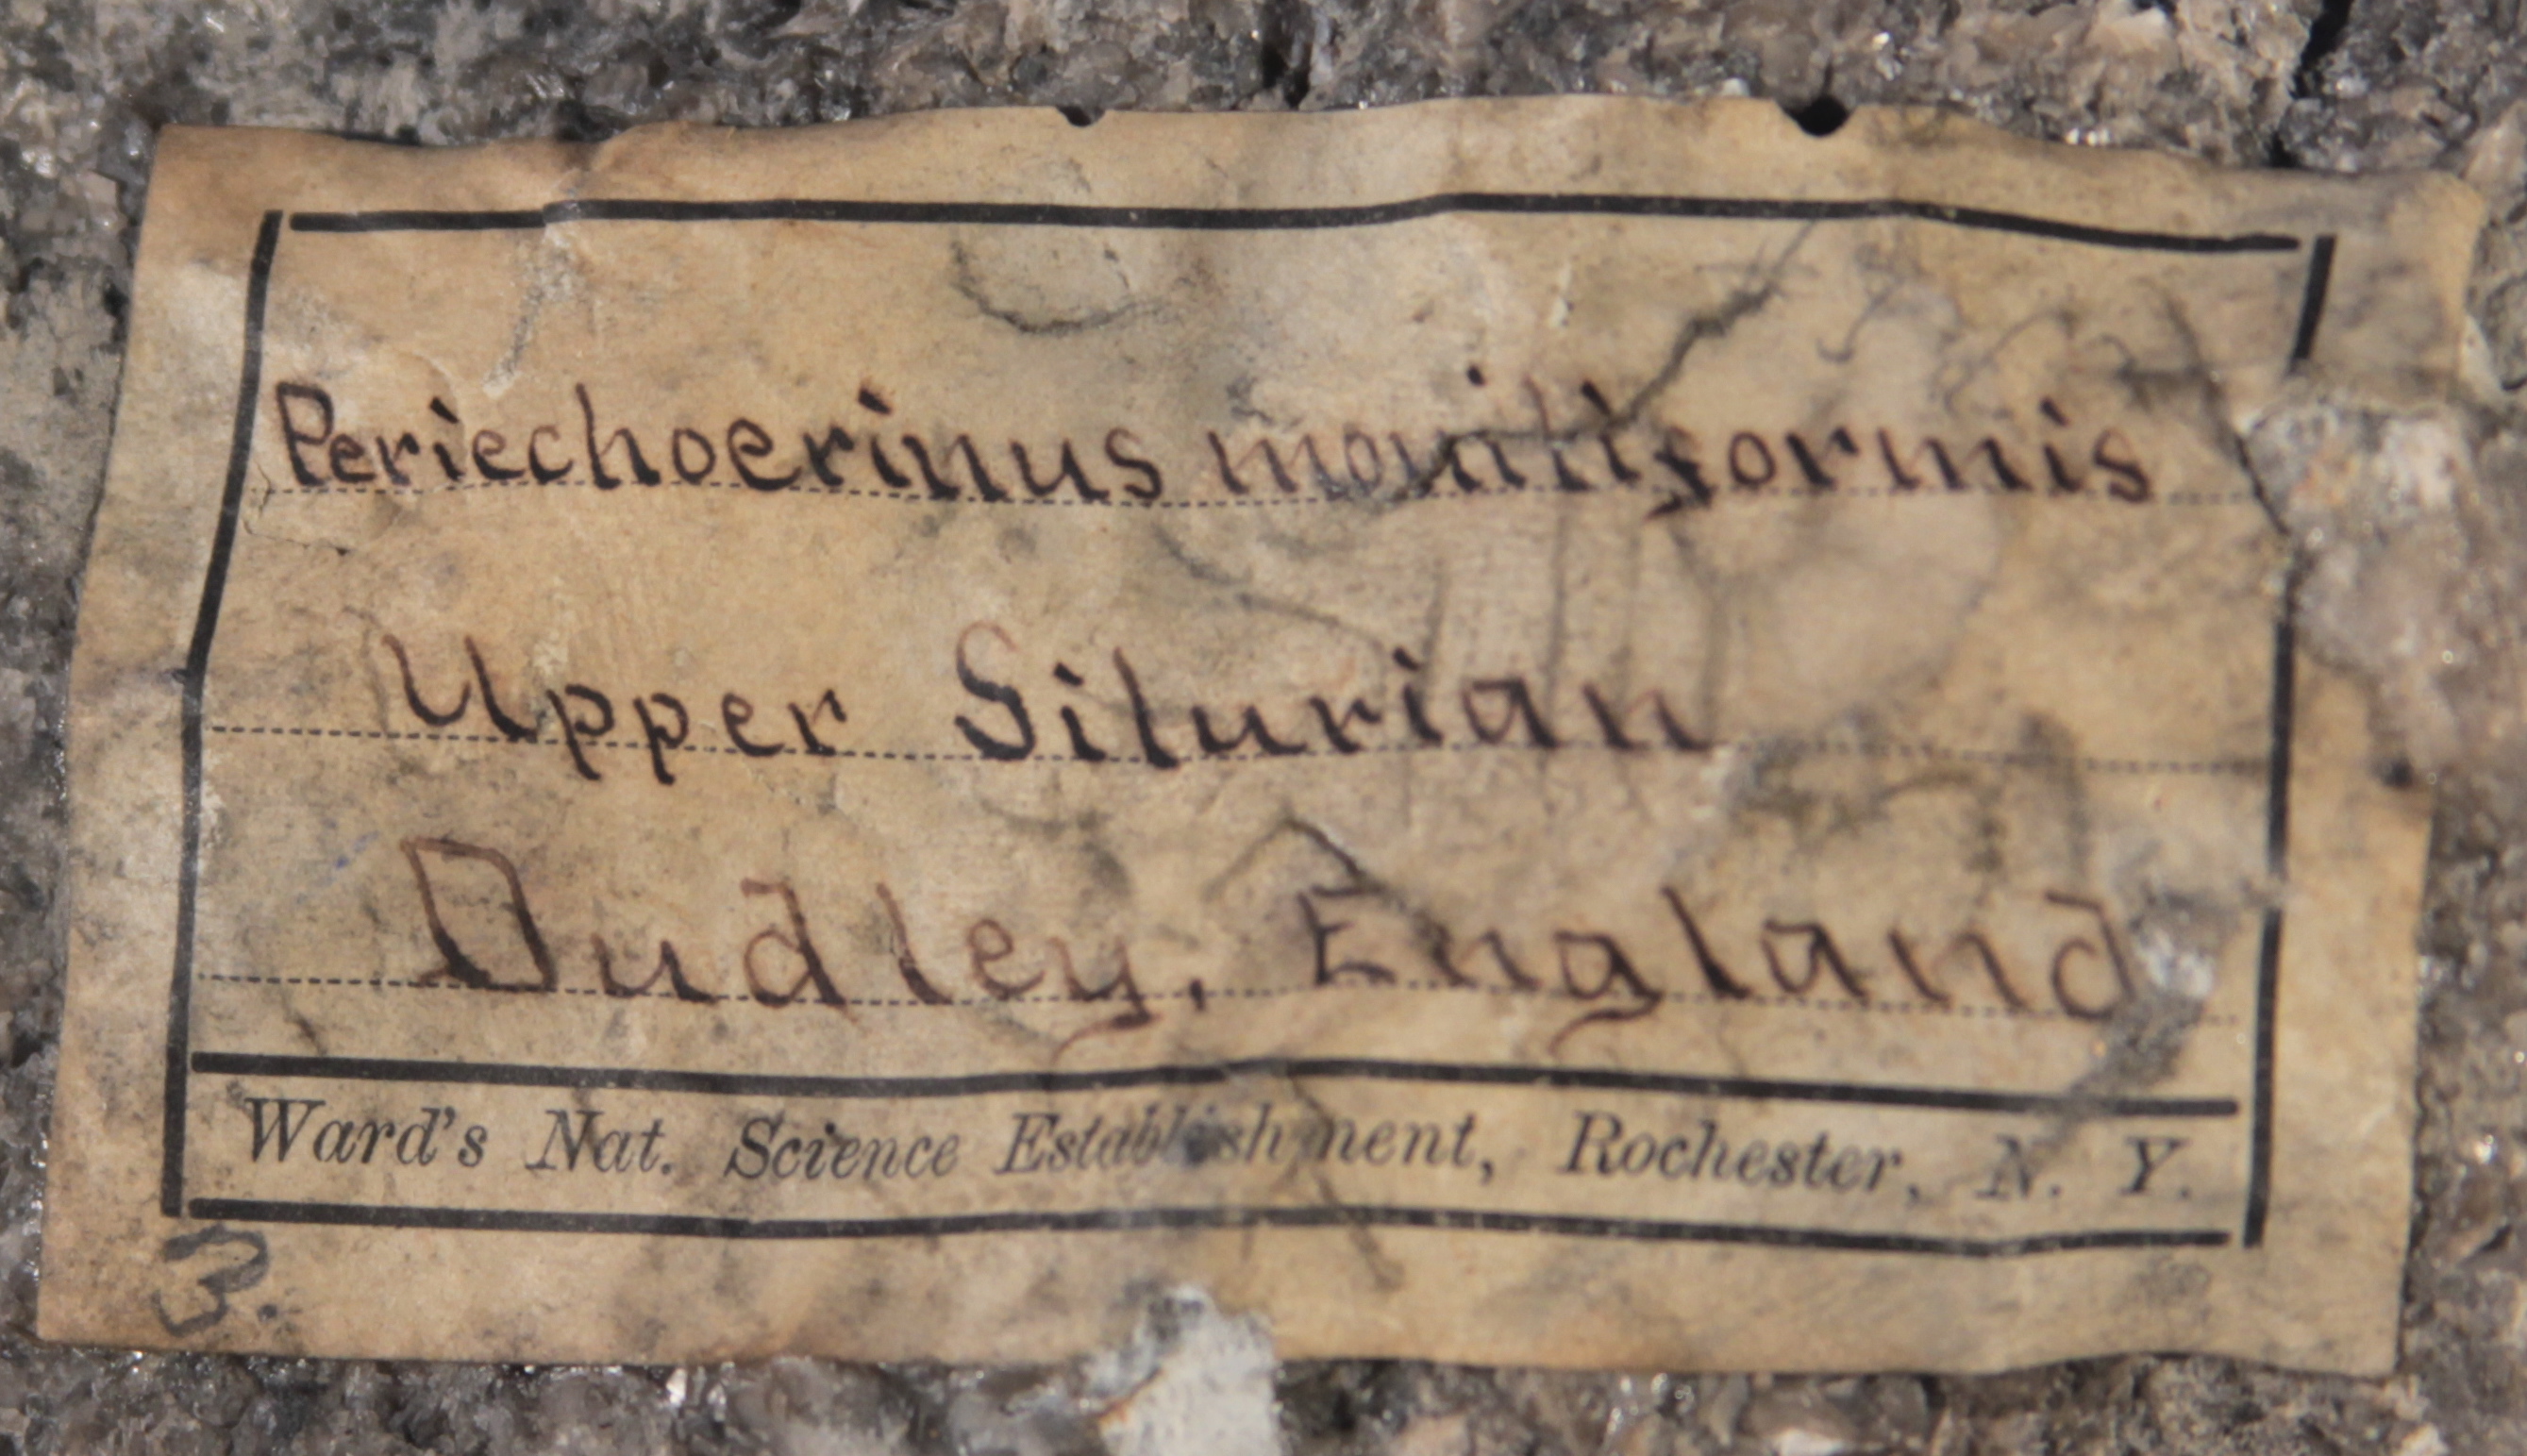 Periechoerinus moniliformis
Upper Silurian
Dudley, England
Ward's Nat. Science Establishment, Rochester, N. Y.
3.